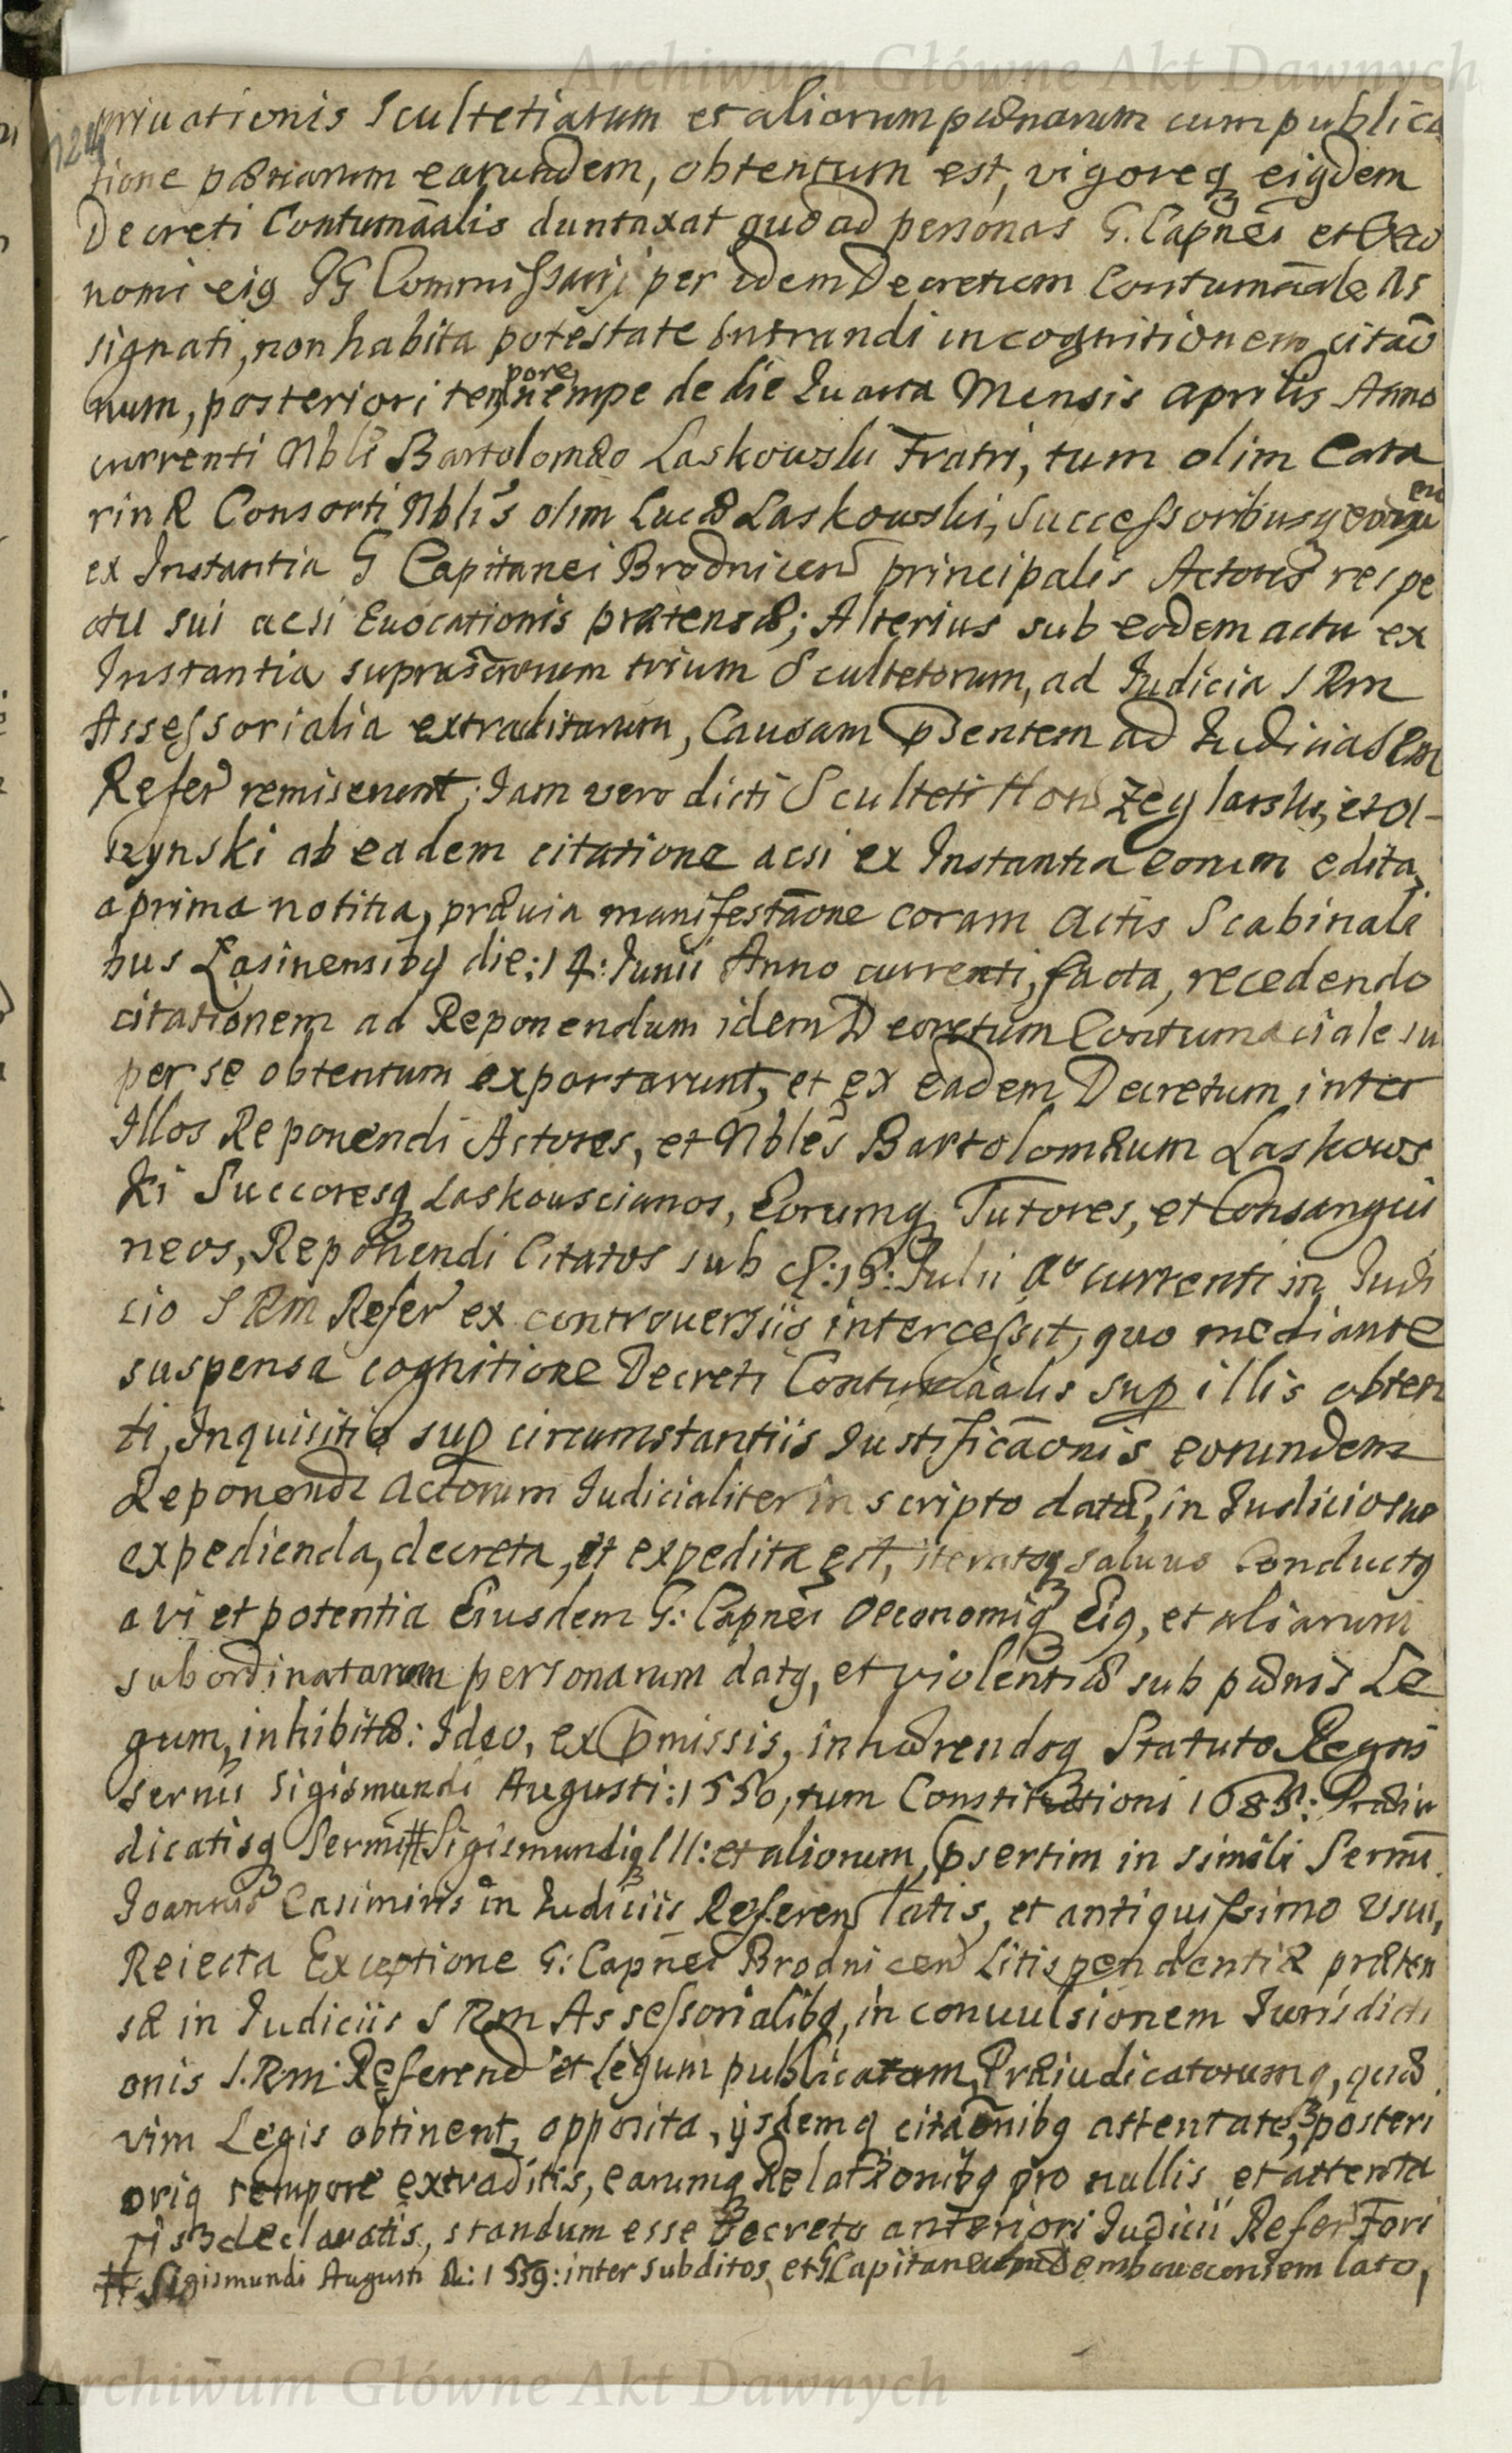 Archiwum Główne Akt Dawnych
privationis Scultetiarum et aliorum pænarum cum publica
tione pænarum earundem, obtentum est, vigoreq eigdem
Decreti Contumãalis duntaxat quo ad personas G. Capnẽi et Oeco
nomi eig GG Commissarij per idem Decretum Contumãale As
signati, non habita potestate Intrandi in cognitionem citaõ
num, posteriori tempore nempe de die Quarta Mensis Aprilis Anno
currenti Nbli Bartolomæo Laskowski Fratri, tum olim Cata
rinæ Consorti Nblis olim Lucæ Laskowski, Successoribusq eorum
ex Instantia G Capitanei Brodnicen principalis Actoris respe
ctu sui acsi Evocationis prætensæ; Alterius sub eodem actu ex
Instantia suprascrorum trium Scultetorum, ad Iudicia S R m
Assessorialia extraditarum, Causam psentem ad Iudicia S R m
Refer remiserunt; Iam vero dicti Sculteti Hon Zeglarski, et Ol-
szynski ab eadem citatione acsi ex Instantia eorum edita,
a prima notitia, prævia manifestãone coram Actis Scabinali
bus Lasinensibg die: 14: Iunii Anno currenti, facta, recedendo
citationem ad Reponendum idem Decretum Contumaciale su
per se obtentum exportarunt, et ex eadem Decretum inter
Illos Reponendi Actores, et Nbles Bartolomæum Laskows
ki Succoresq Laskouscianos, Eorumq Tutores, et Consangui
neos, Reponendi Citatos sub d: 18: Iulii Aº currenti in Iudi
cio S R m Refer ex controversiis intercessit, quo mediante
suspensa cognitione Decreti Contumãalis sup illis obten
ti, Inquisitio sup circumstantiis Iustificãonis eorundem
Reponendi Actorum Iudicialiter in scripto data, in Iudicio suo
expedienda, decreta, et expedita est, iteratoq salvus Conductg
a vi et potentia Eiusdem G: Capnẽi Oeconomiq Eig, et aliarum
subordinatarum personarum datg, et violentiæ sub pænis Le
gum, inhibitæ: Ideo, ex pmissis, inhærendoq Statuto Regni
Sernii Sigismundi Augusti: 1550, tum Constitutioni 1685: Præiu
dicatisq Sermi # Sigismundiq III: et aliorum, psertim in simili Sermi
Joannis Casimiris in Iudiciis Referen latis, et antiquissimo Usui,
Reiecta Exceptione G: Capnẽi Brodnicen Litispendentiæ præten
sæ in Iudiciis S R m Assessorialibg, in convulsionem Iurisdicti
onis S. R m Referend et legum publicatarum, Præiudicatorumq, quæ
vim Legis obtinent, opposita, ijsdemq citãonibg attentatè, posteri
oriq tempore extraditis, earumq Relationibg pro nullis et attenta
tis declaratis, standum esse Decreto anteriori Iudicii Refer Fori
# Sigismundi Augusti A: 1559: inter subditos, et G Capitaneum lato,
Archiwum Główne Akt Dawnych